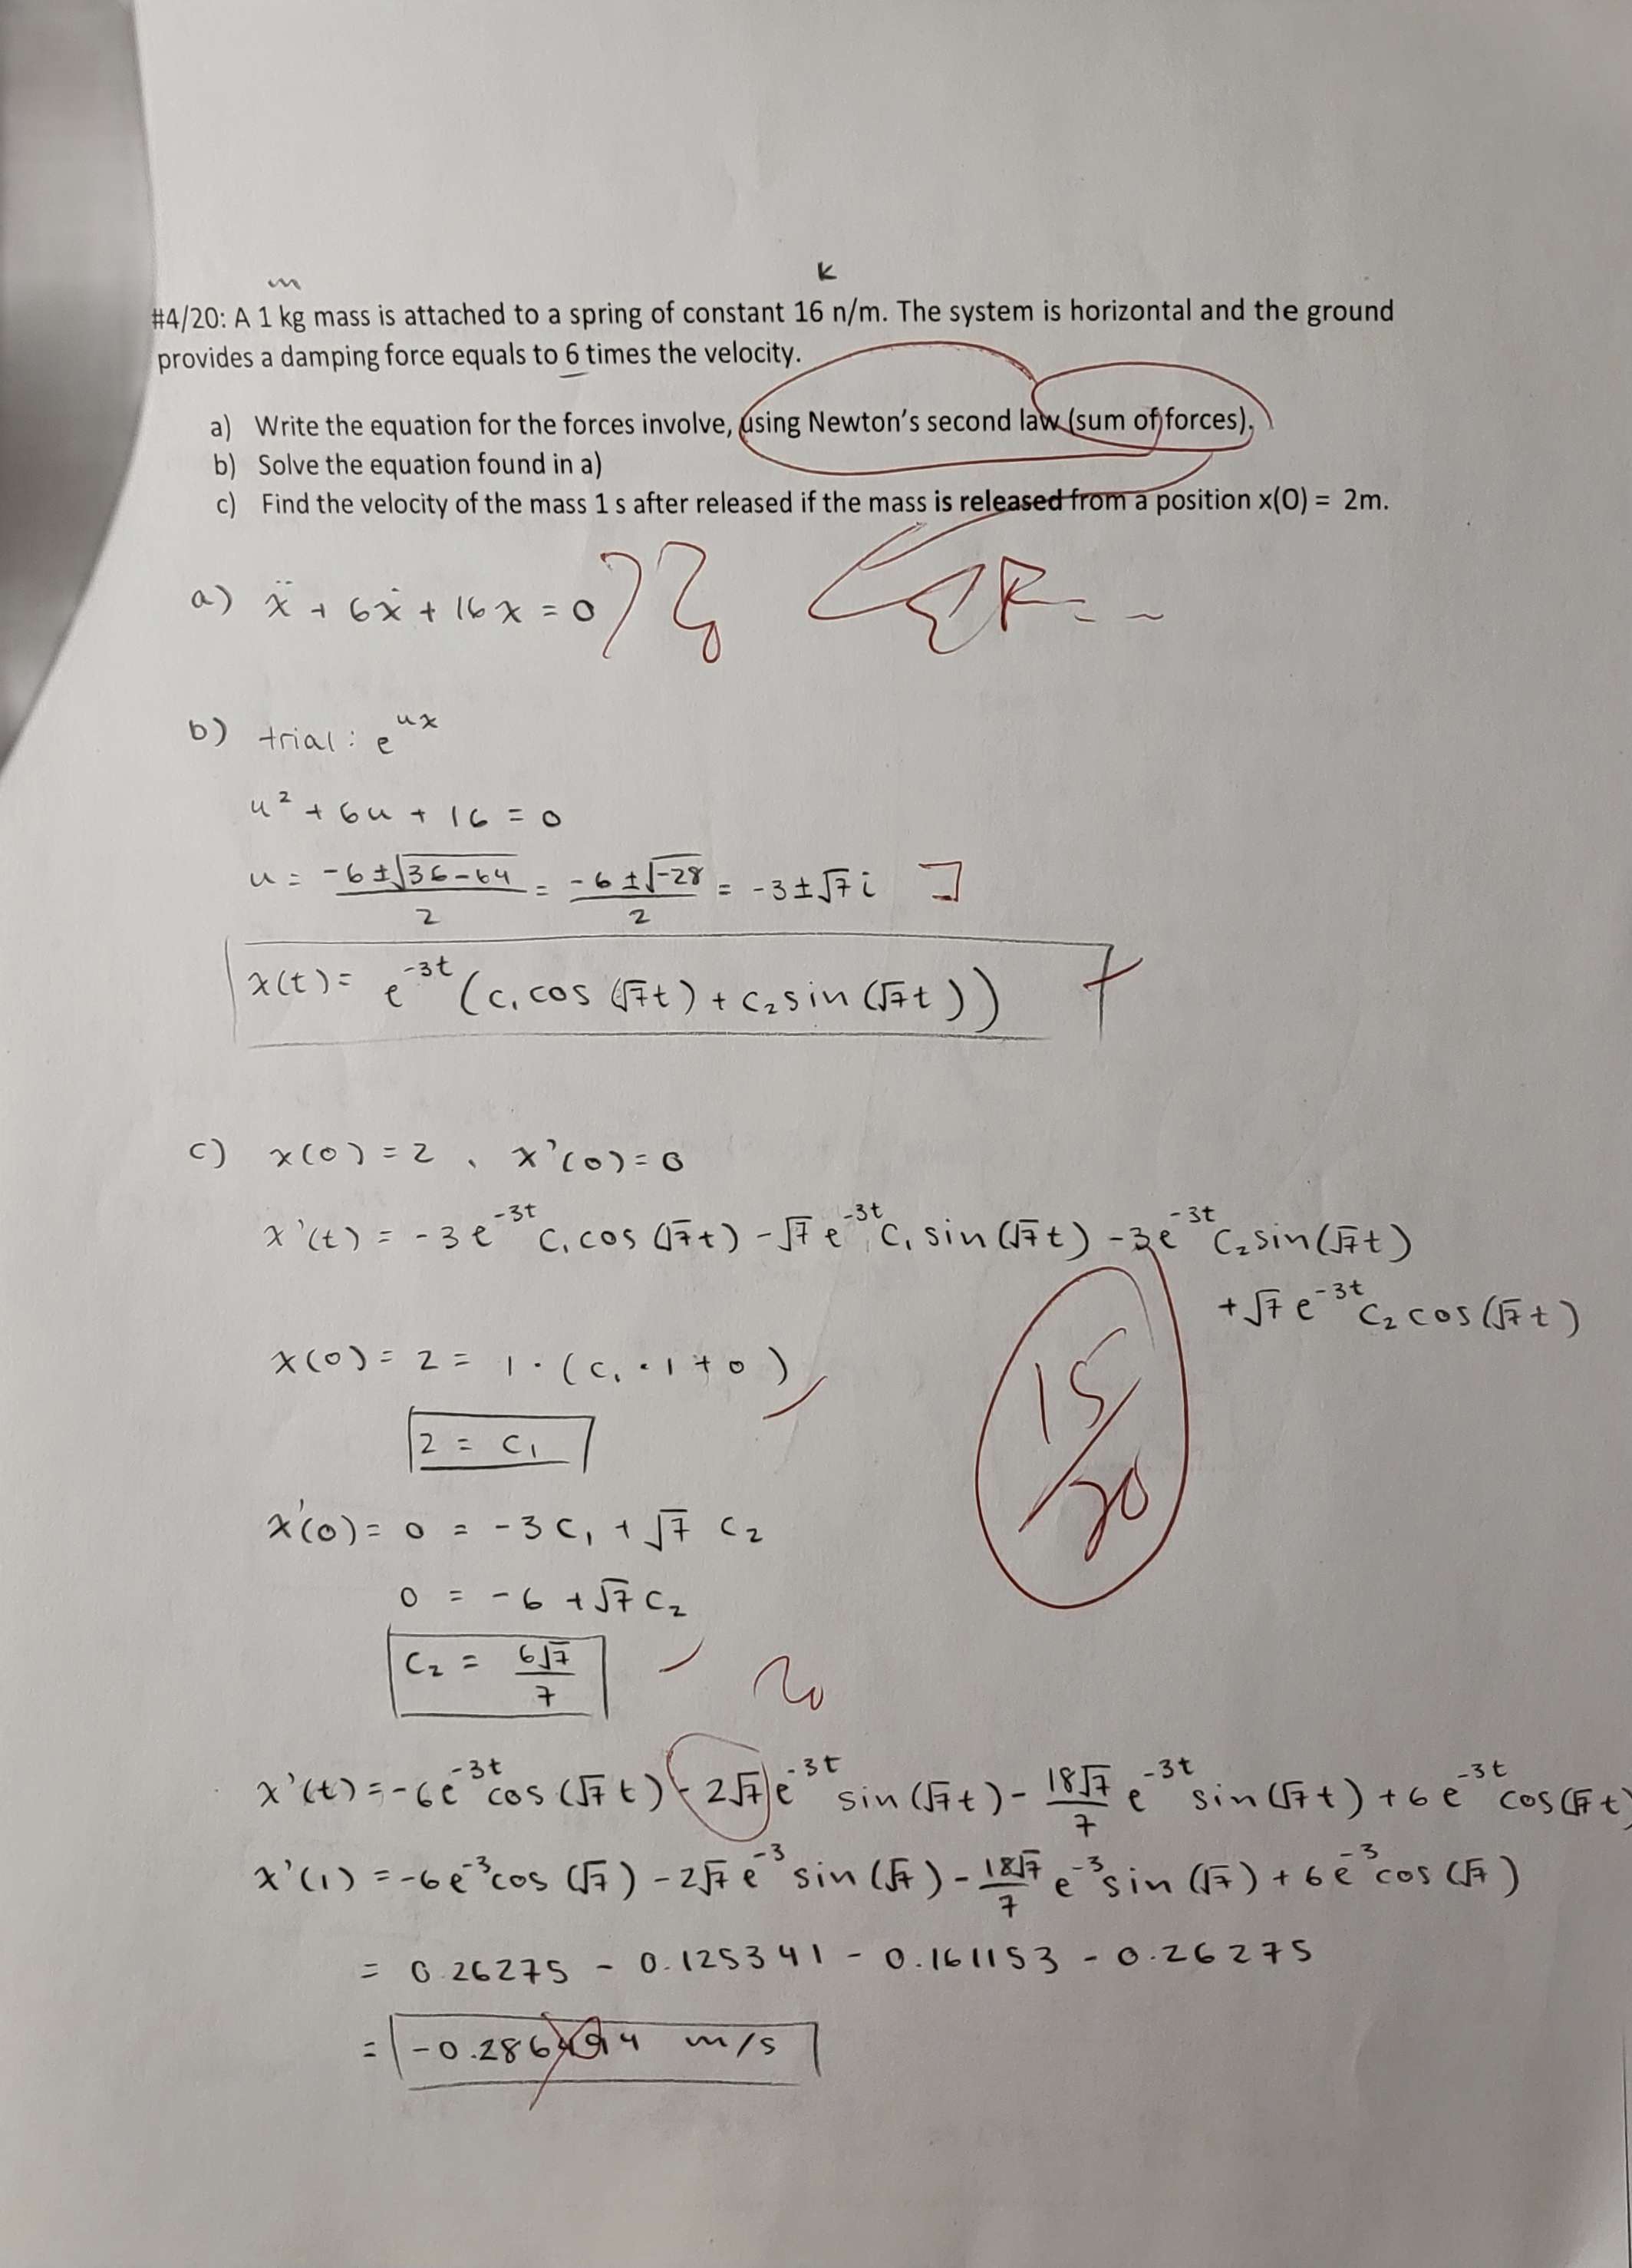 m
k
#4/20: A 1 kg mass is attached to a spring of constant 16 n/m. The system is horizontal and the ground
provides a damping force equals to 6 times the velocity.
a) Write the equation for the forces involve, using Newton's second law (sum of forces).
b) Solve the equation found in a)
c) Find the velocity of the mass 1 s after released if the mass is released from a position x(0) = 2m.
a) ẍ + 6ẋ + 16x = 0
ΣF = -
b) trial: e^{ux}
u² + 6u + 16 = 0
u = (-6 ± √(36-64))/2 = (-6 ± √-28)/2 = -3 ± √7 i
x(t) = e^{-3t} (c₁ cos (√7t) + c₂ sin (√7t))
c) x(0) = 2 , x'(0) = 0
x'(t) = -3e^{-3t} c₁ cos (√7t) - √7 e^{-3t} c₁ sin (√7t) - 3e^{-3t} c₂ sin (√7t)
+ √7 e^{-3t} c₂ cos (√7t)
x(0) = 2 = 1 · (c₁ · 1 + 0)
15/20
2 = c₁
x'(0) = 0 = -3c₁ + √7 c₂
0 = -6 + √7 c₂
c₂ = 6√7/7
x'(t) = -6e^{-3t} cos (√7 t) - 2√7 e^{-3t} sin (√7t) - 18√7/7 e^{-3t} sin (√7t) + 6e^{-3t} cos (√7t)
x'(1) = -6e^{-3} cos (√7) - 2√7 e^{-3} sin (√7) - 18√7/7 e^{-3} sin (√7) + 6e^{-3} cos (√7)
= 0.26275 - 0.125341 - 0.161153 - 0.26275
= -0.286494 m/s